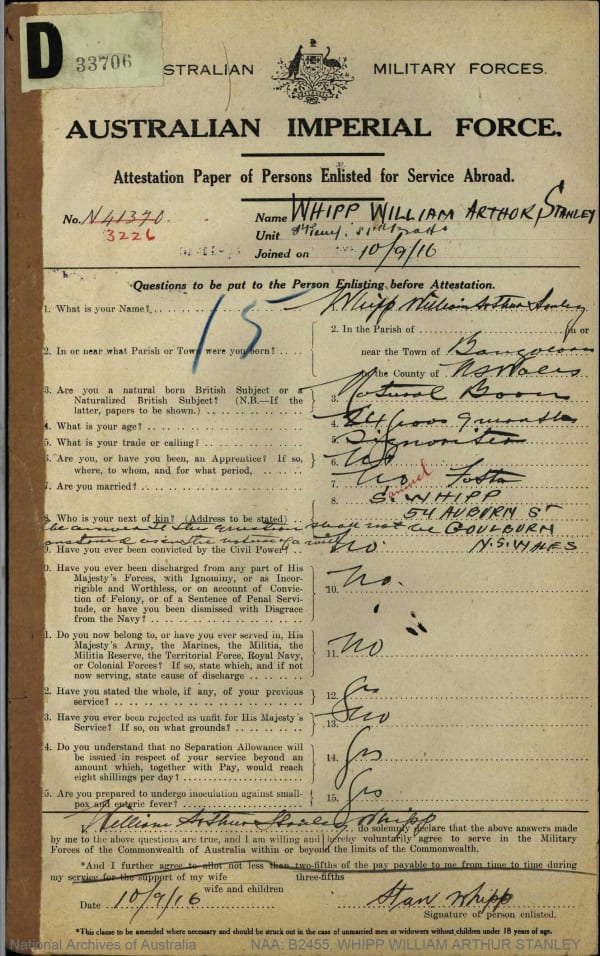 D 33706
STRALIAN MILITARY FORCES.
AUSTRALIAN IMPERIAL FORCE.
Attestation Paper of Persons Enlisted for Service Abroad.
No. N 41370. Name WHIPP WILLIAM ARTHUR STANLEY
3226 Unit
Joined on 10/9/16
Questions to be put to the Person Enlisting before Attestation.
15
1. What is your Name? Whipp William Arthur Stanley
2. In the Parish of in or
2. In or near what Parish or Town were you born? near the Town of
the County of NS Wales
3. Are you a natural born British Subject or a
Naturalized British Subject? (N.B.—If the 3. Natural Born
latter, papers to be shown.)
4. What is your age? 4. 24 years 9 months
5. What is your trade or calling? 5. Signwriter
6. Are you, or have you been, an Apprentice? If so, 6. No
where, to whom, and for what period,
7. Are you married? 7. No
8. S. WHIPP
8. Who is your next of kin? (Address to be stated) 54 AUBURN ST
GOULBURN
9. Have you ever been convicted by the Civil Power? No N.S. WALES
0. Have you ever been discharged from any part of His
Majesty's Forces, with Ignominy, or as Incor-
rigible and Worthless, or on account of Convic- 10. No.
tion of Felony, or of a Sentence of Penal Servi-
tude, or have you been dismissed with Disgrace
from the Navy?
1. Do you now belong to, or have you ever served in, His
Majesty's Army, the Marines, the Militia, the
Militia Reserve, the Territorial Force, Royal Navy, 11. No
or Colonial Forces? If so, state which, and if not
now serving, state cause of discharge
2. Have you stated the whole, if any, of your previous
service? 12. Yes
3. Have you ever been rejected as unfit for His Majesty's
Service? If so, on what grounds? 13. No
4. Do you understand that no Separation Allowance will
be issued in respect of your service beyond an 14. Yes
amount which, together with Pay, would reach
eight shillings per day?
5. Are you prepared to undergo inoculation against small-
pox and enteric fever? 15. Yes
I, William Arthur Stanley Whipp do solemnly declare that the above answers made
by me to the above questions are true, and I am willing and hereby voluntarily agree to serve in the Military
Forces of the Commonwealth of Australia within or beyond the limits of the Commonwealth.
*And I further agree to allot not less than two-fifths of the pay payable to me from time to time during
my service for the support of my wife three-fifths
wife and children
Date 10/9/16 Stan Whipp
Signature of person enlisted.
*This clause to be amended where necessary and should be struck out in the case of unmarried men or widowers without children under 18 years of age.
National Archives of Australia NAA: B2455, WHIPP WILLIAM ARTHUR STANLEY